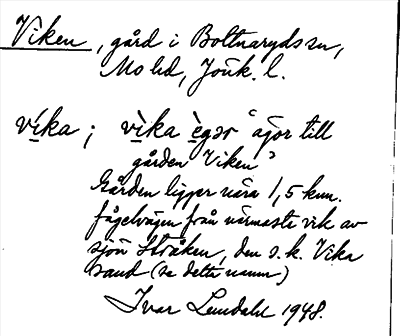 Viken, gård i Bottnaryds sn,
Mo hd, Jönk. l.
vika; vika egər "ägor till
gården Viken"
Gården ligger nära 1,5 km.
fågelvägen från närmaste vik av
sjön Stråken, den s.k. Vika
sand (se detta namn)
Ivar Lundahl 1948.